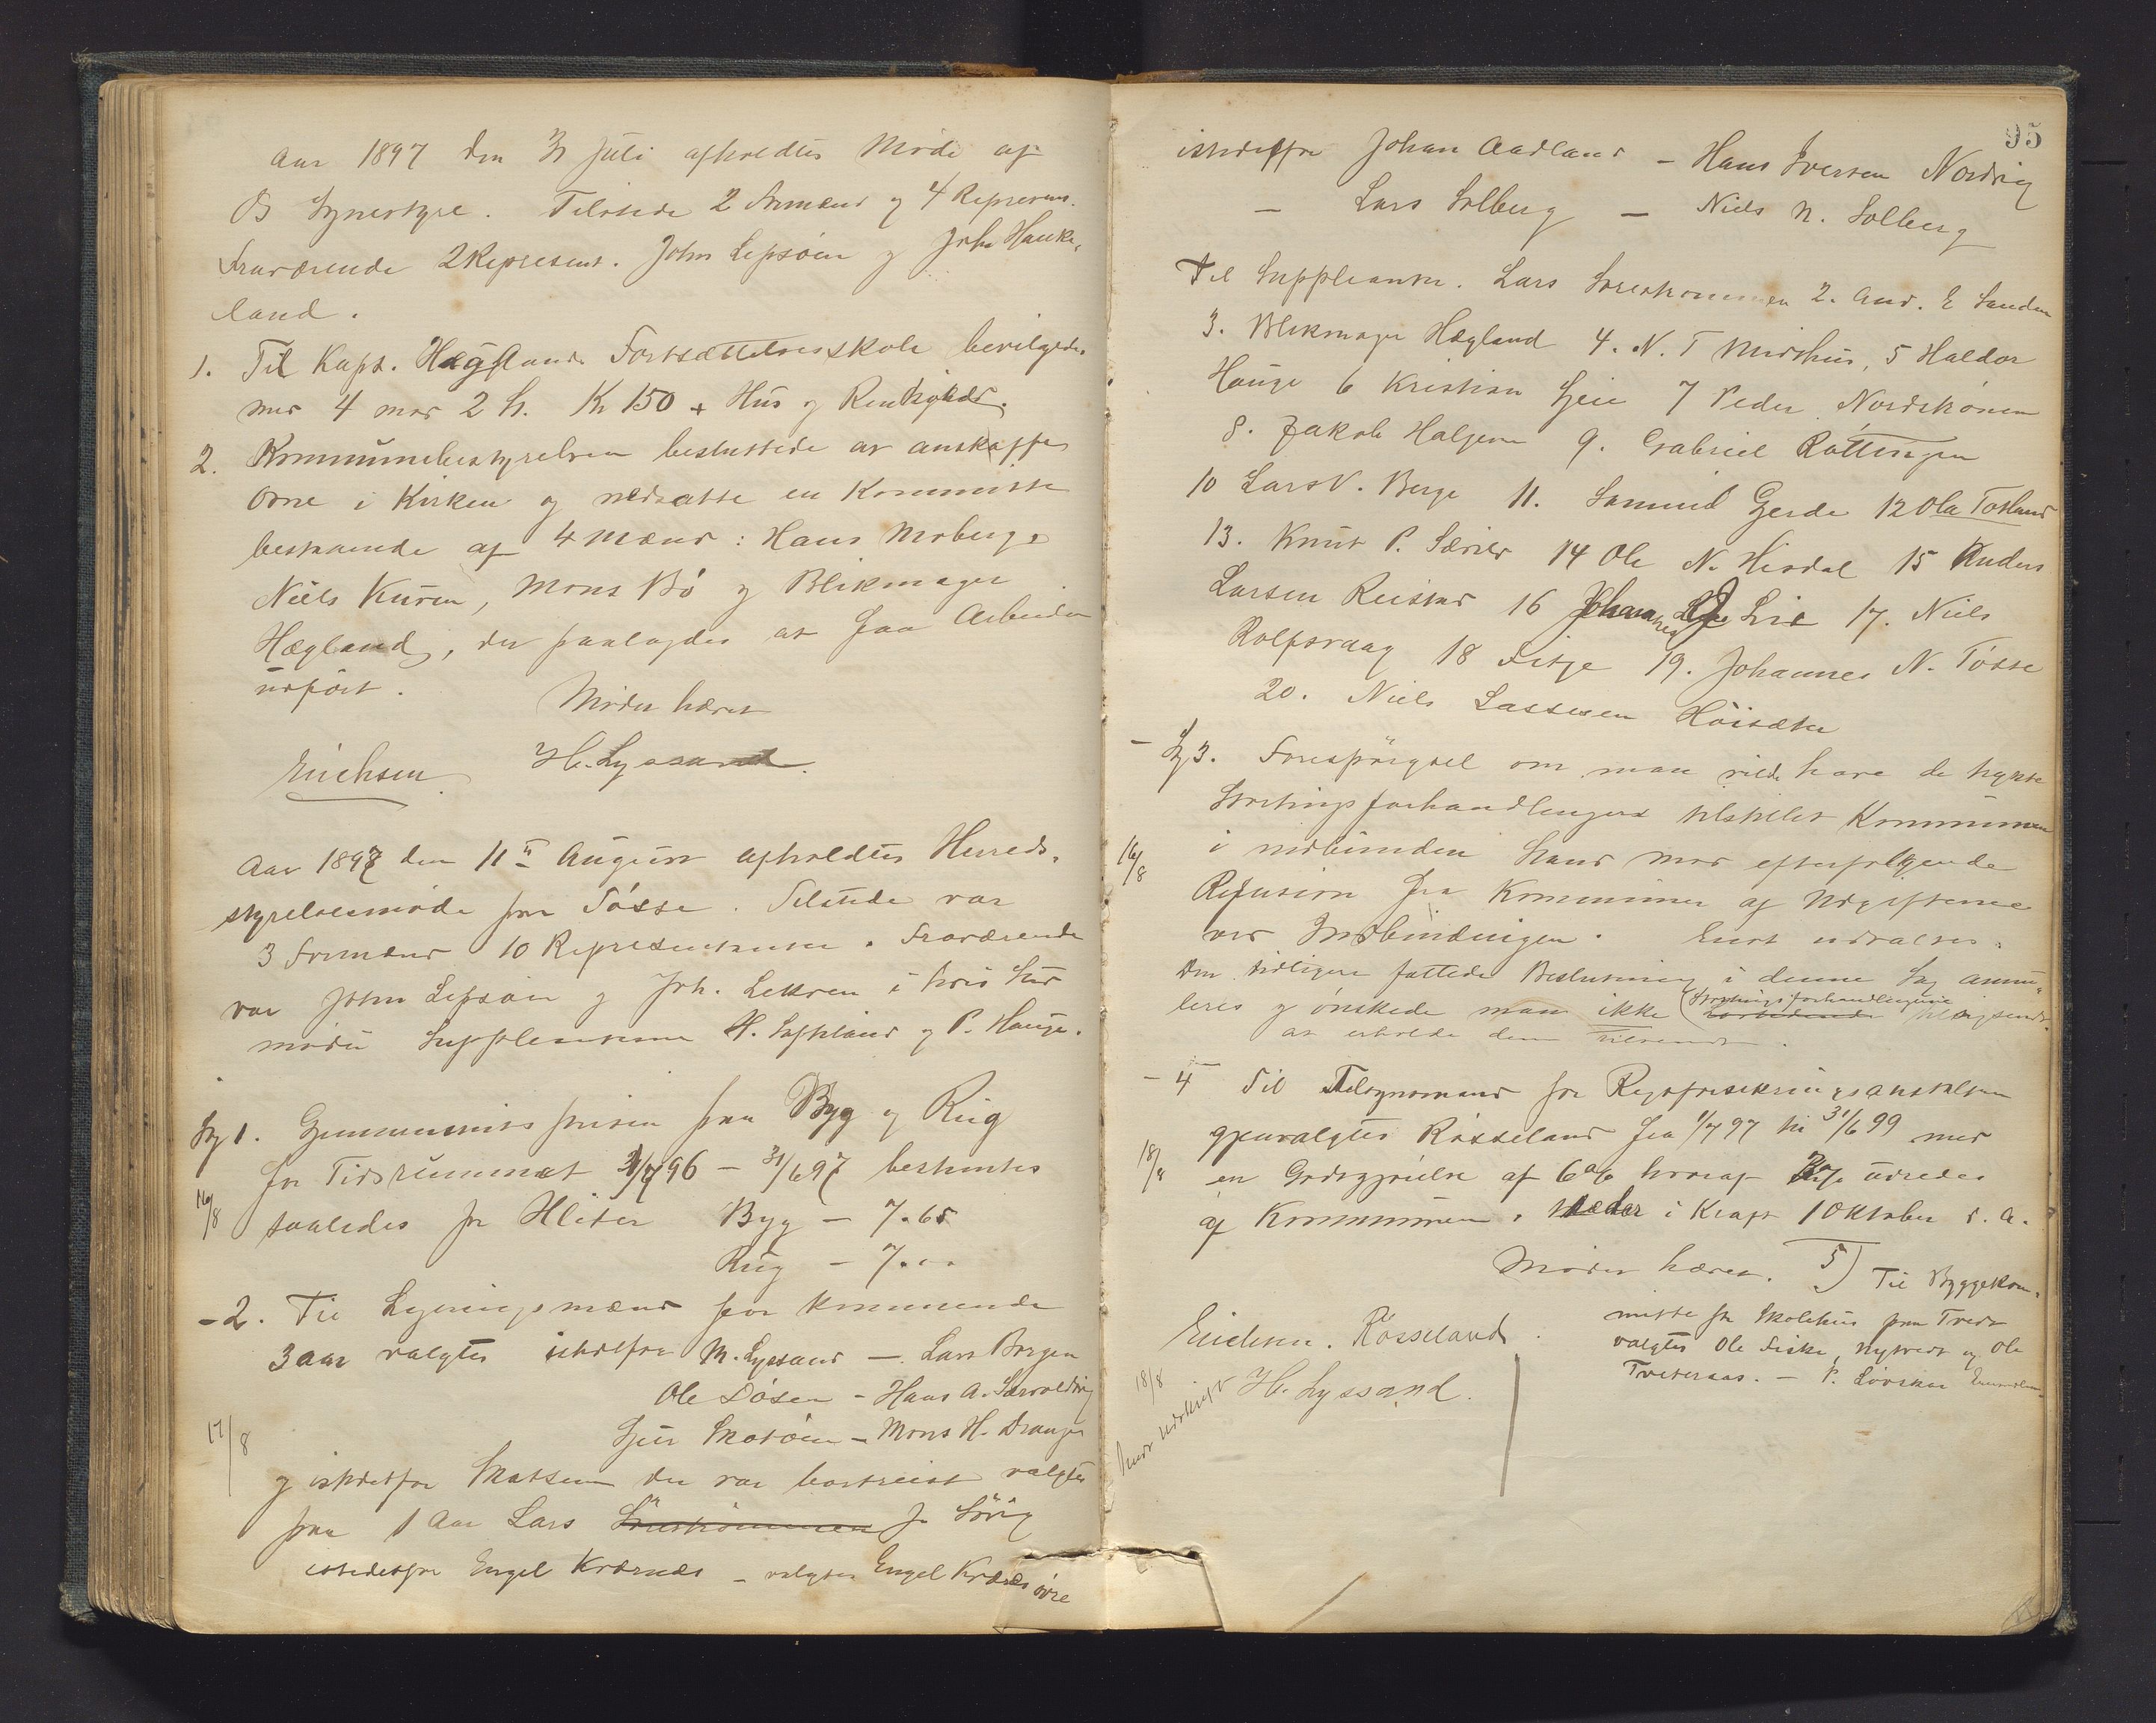 Aar 1897 den 31 Juli afholdtes Møde af
Os Sognestyre. Tilstede 2 Formænd og 4 Repræsent.
Fraværende 2 Represent. John Lepsøen og Joh. Hauke-
land.
1. Til Kapt. Hægglands Fortsættelsesskole bevilgedes
mod 4 mod 2 St. Kr 150 + Hus og Renhold.
2. Kommunebestyrelsen besluttede at anskaffe
Ovne i Kirken og nedsatte en Kommitte
bestaaende af 4 Mænd: Hans Moberg,
Niels Kuven, Mons Bø og Blikmager
Hægland, der paalagdes at faa Arbeidet
udført.
Mødet hævet
Erichsen H. Lyssand.
Aar 1897 den 11te August afholdtes Herreds-
styrelsesmøde paa Tøsse. Tilstede var
3 Formænd 10 Representanter. Fraværende
var John Lepsøen og Joh. Lekven i hvis Sted
mødte Suppleanterne H. Søfteland og P. Hauge.
Sag 1. Gjennemsnitsprisen paa Byg og Rug
for Tidsrummet 1/7 96 - 31/6 97 bestemtes
16/8 saaledes pr Hliter Byg - 7.65
Rug - 7.00
- 2. Til Ligningsmænd for kommende
3 Aar valgtes istedetfor M. Lyssand - Lars Borgen
Ole Døsen - Hans A. Særvoldvig
Sjur Skotøen - Mons H. Drange
17/8
og istedetfor Madsen der var bortreist valgtes
paa 1 Aar Lars Sørstrønnen J. Sørig
istedetfor Engel Kvernes - valgtes Engel Kvernes øvre
95
istedetfor Johan Aadland - Hans Iversen Nordvig
- Lars Solberg - Niels N. Solberg
Til Suppleanter. Lars Sørstrønnen 2. And. E Sanden
3. Blikmager Hægland 4. N. T Midthus, 5 Haldor
Hauge 6 Kristian Lyseie 7 Peder Nordstrønen
8. Jakob Haljem 9. Gabriel Røttingen
10 Lars V. Berge 11. Samuel Gjerde 12 Ola Tofland
13. Knut P. Særvold 14 Ole N. Hisdal 15 Anders
Larsen Reistad 16 Johannes J. Lie 17. Niels
Rolfsvaag 18 Fitje 19. Johannes N. Tøsse
20. Niels Lassesen Høisæter
- Sag 3. Forespørgsel om man vilde have de trykte
Stortingsforhandlinger tilstillet Kommunen
16/8 i indbunden Stand mod efterfølgende
Refusion fra Kommunen af Udgifterne
ved Indbindingen. Enst. vedtages:
Den tidligere fattede Beslutning i denne Sag annu-
leres og ønskede man ikke (Stortingsforhandlingerne tilsendt.
at erholde dem tilsendt.
- 4 Til Tilsynsmand for Rigsforsikringsanstalten
gjenvalgtes Røsseland fra 1/7 97 til 31/6 99 med
18/8 en Godtgjørelse af 6% hvoraf udredes
af Kommunen. træder i Kraft 1 Oktober d. A.
Mødet hævet. 5) Til Byggekom-
mitte for Skolehus paa Tveit
valgtes Ole Fiske, Nytveit og Ole
Tveteraas. - P. Løvskar
Erichsen. Røsseland.
H. Lyssand.
18/8 Udskrift